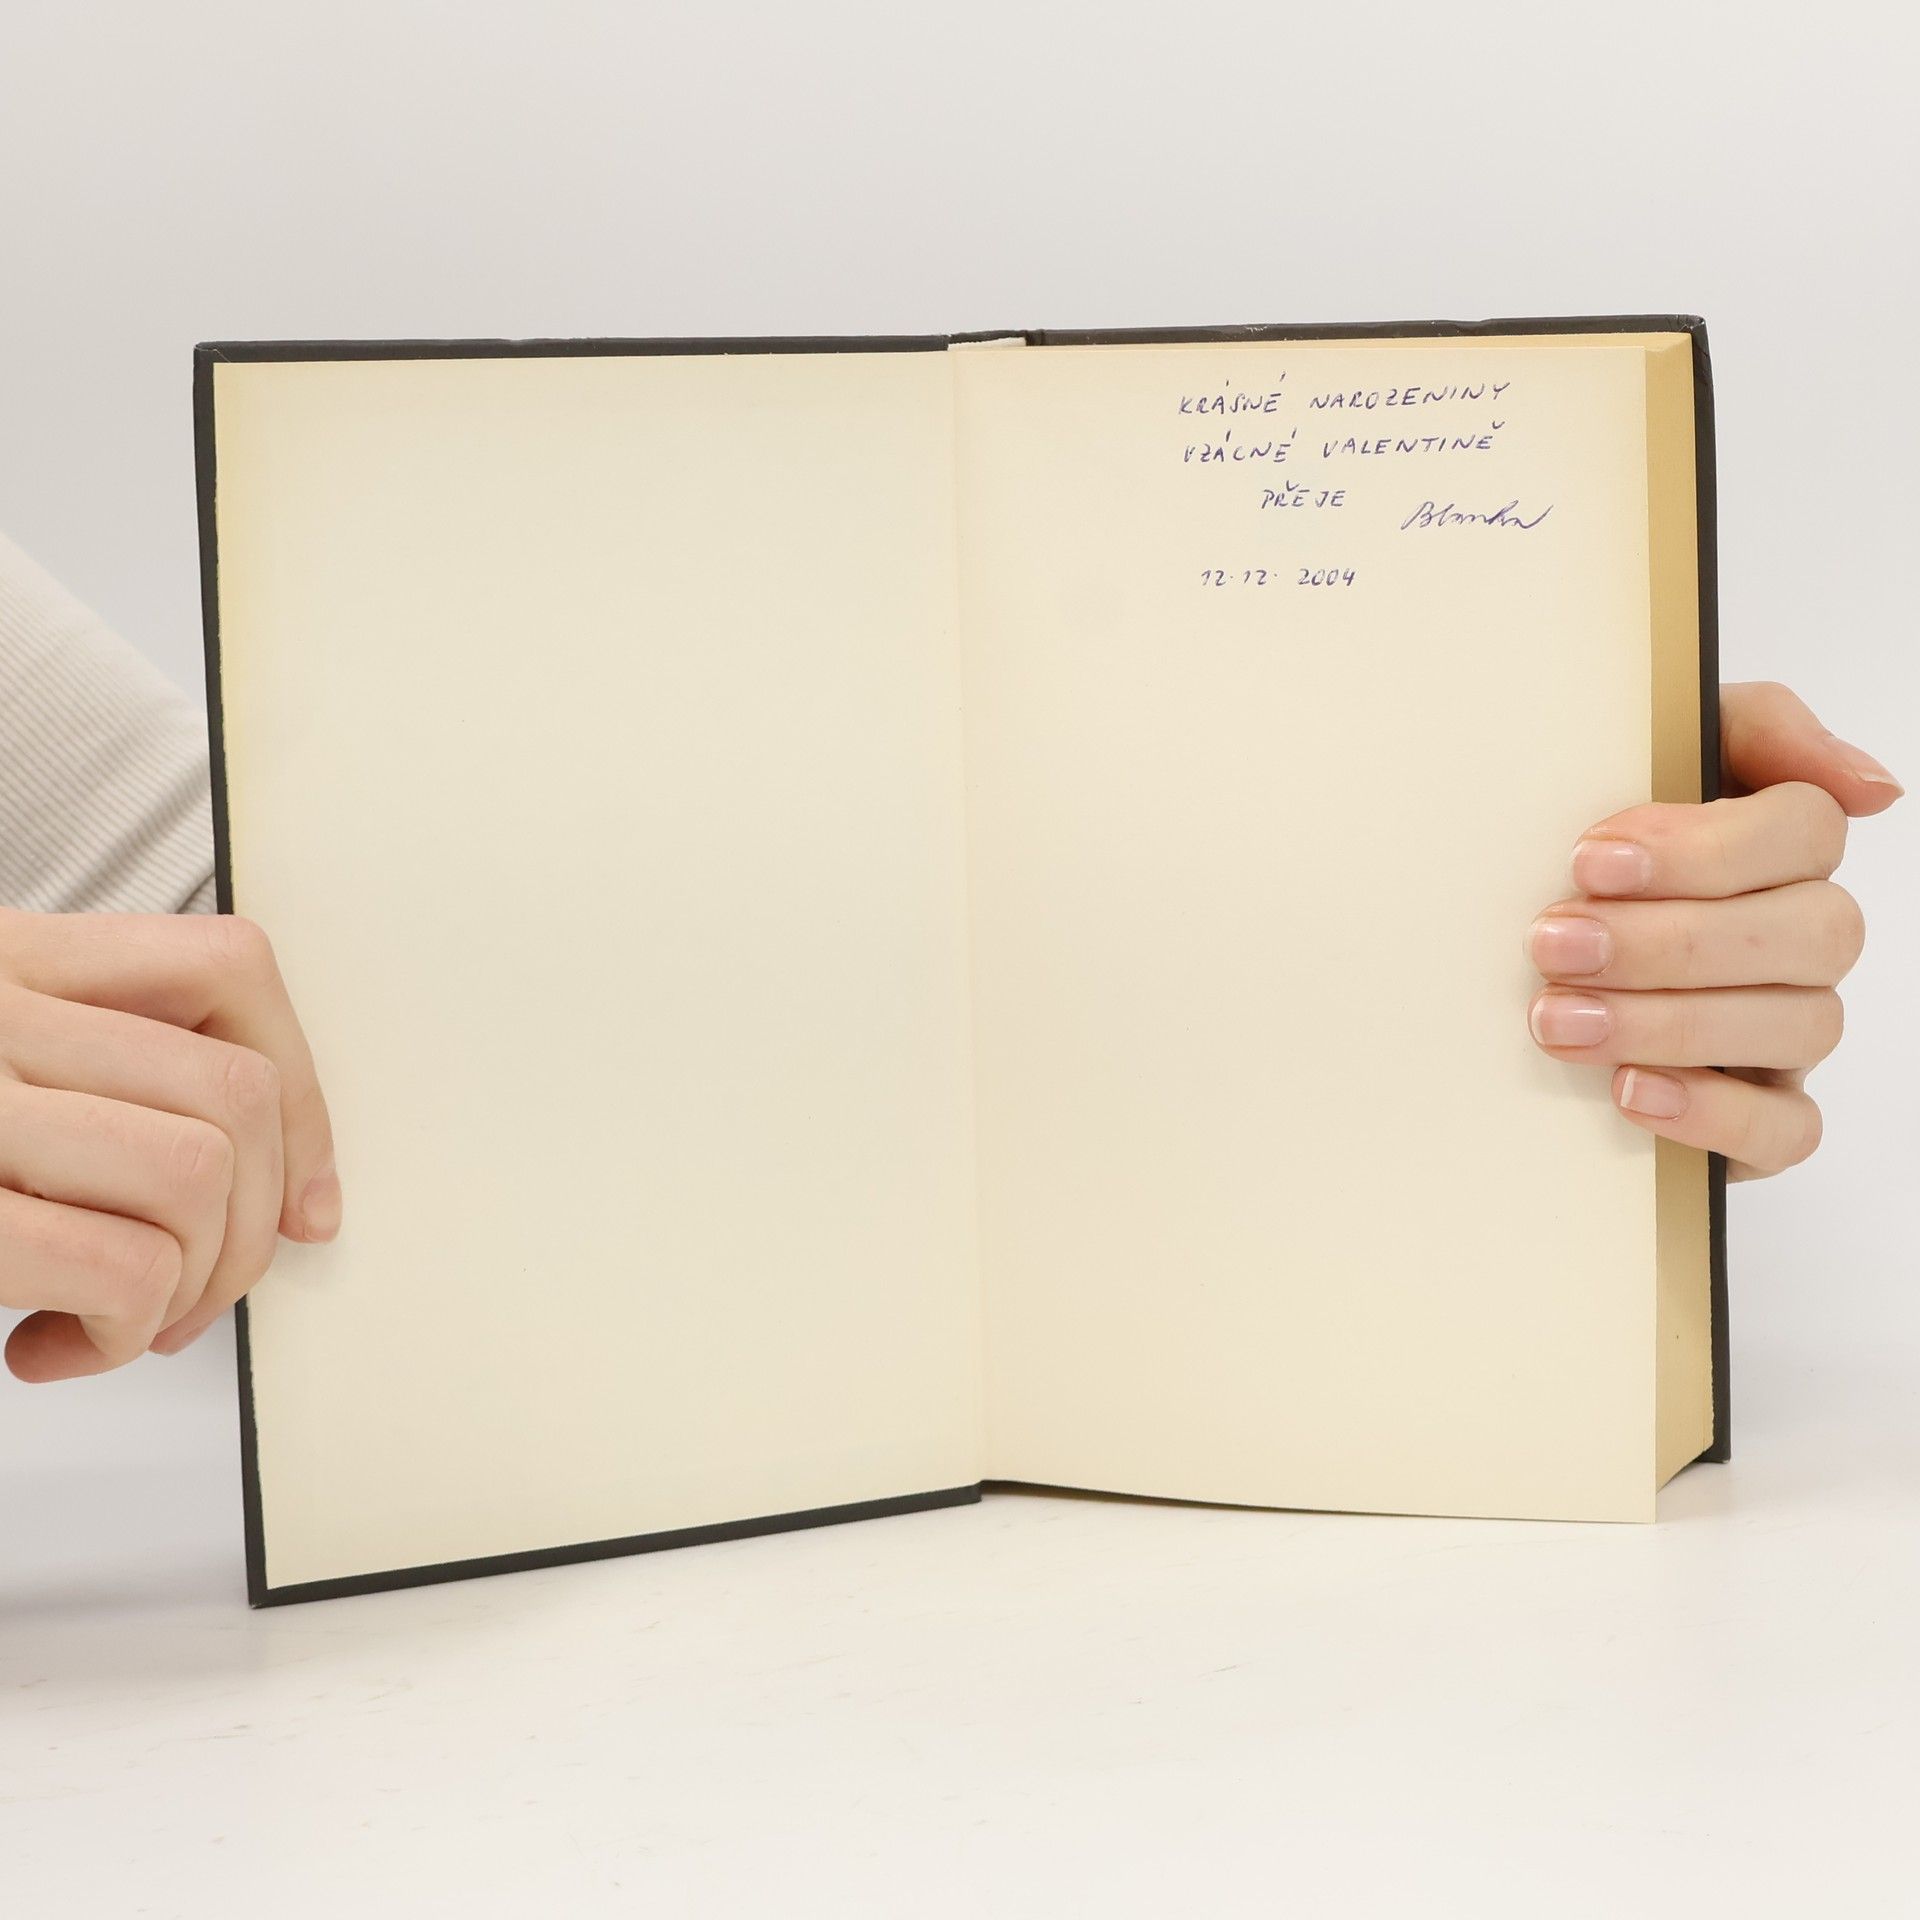 KRÁSNÉ NAROZENINY
VZÁCNÉ VALENTINĚ
PŘEJE Blanka
12.12. 2004